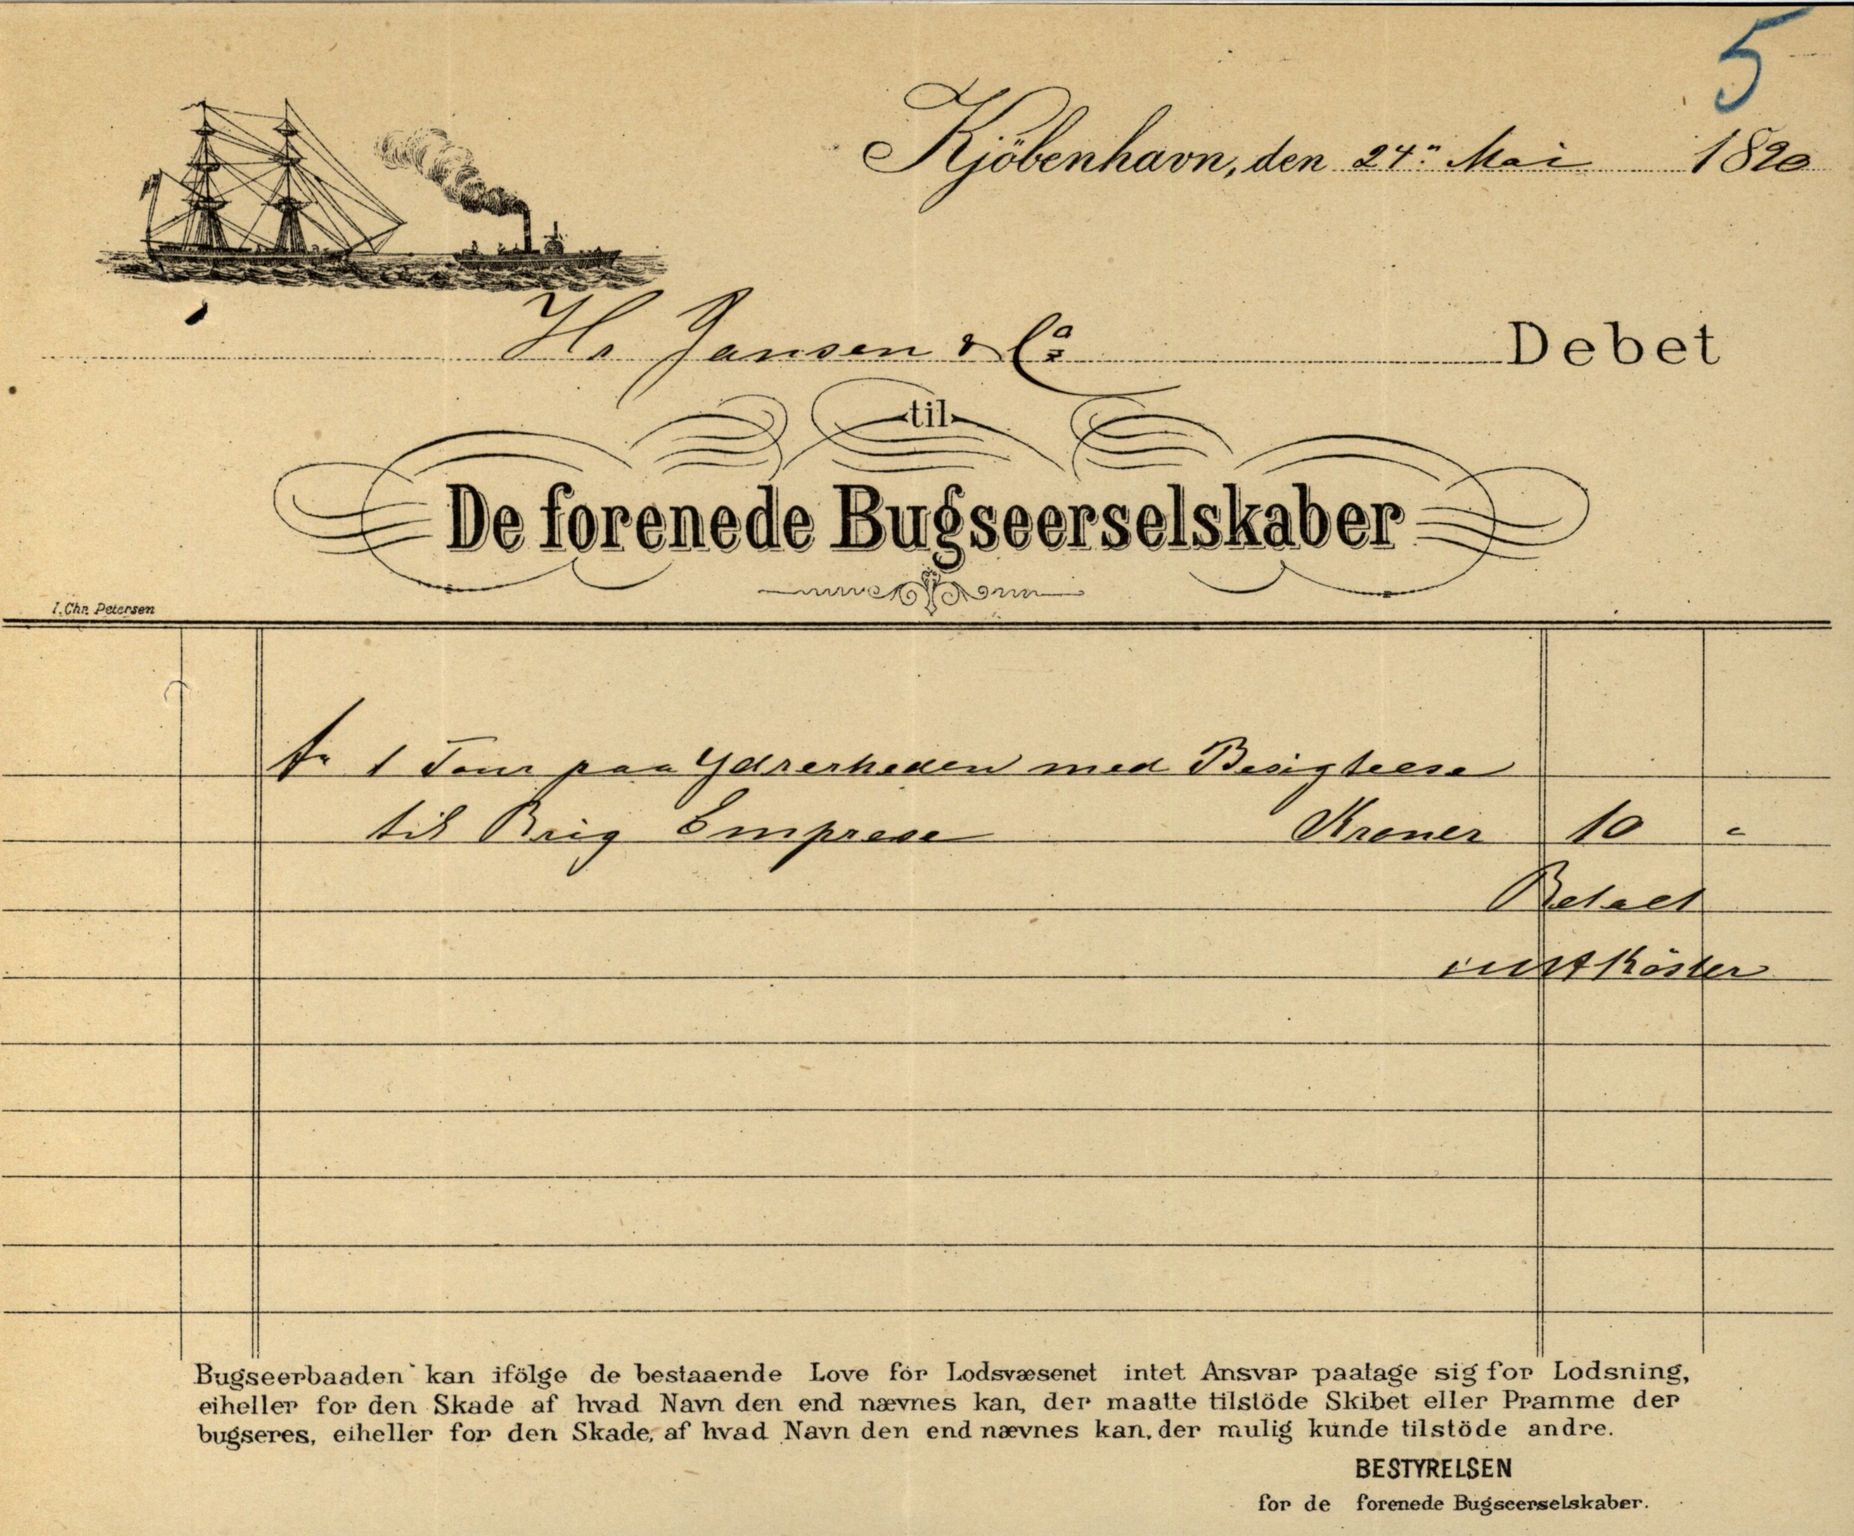 5
Kjöbenhavn, den 24" Mai 1890
Hr Jansen & Co Debet
til
De forenede Bugseerselskaber
I. Chr. Petersen
1 Tour paa Ydrerheden med Besigtelse
til Brig Emprese Kroner 10 "
Betalt
Köster
Bugseerbaaden kan ifölge de bestaaende Love for Lodsvæsenet intet Ansvar paatage sig for Lodsning,
eiheller for den Skade af hvad Navn den end nævnes kan, der maatte tilstöde Skibet eller Pramme der
bugseres, eiheller for den Skade, af hvad Navn den end nævnes kan, der mulig kunde tilstöde andre.
BESTYRELSEN
for de forenede Bugseerselskaber.